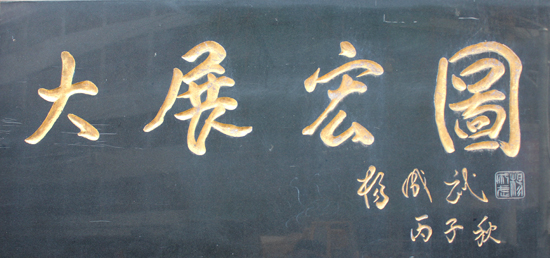 大展宏圖
楊成武
丙子秋